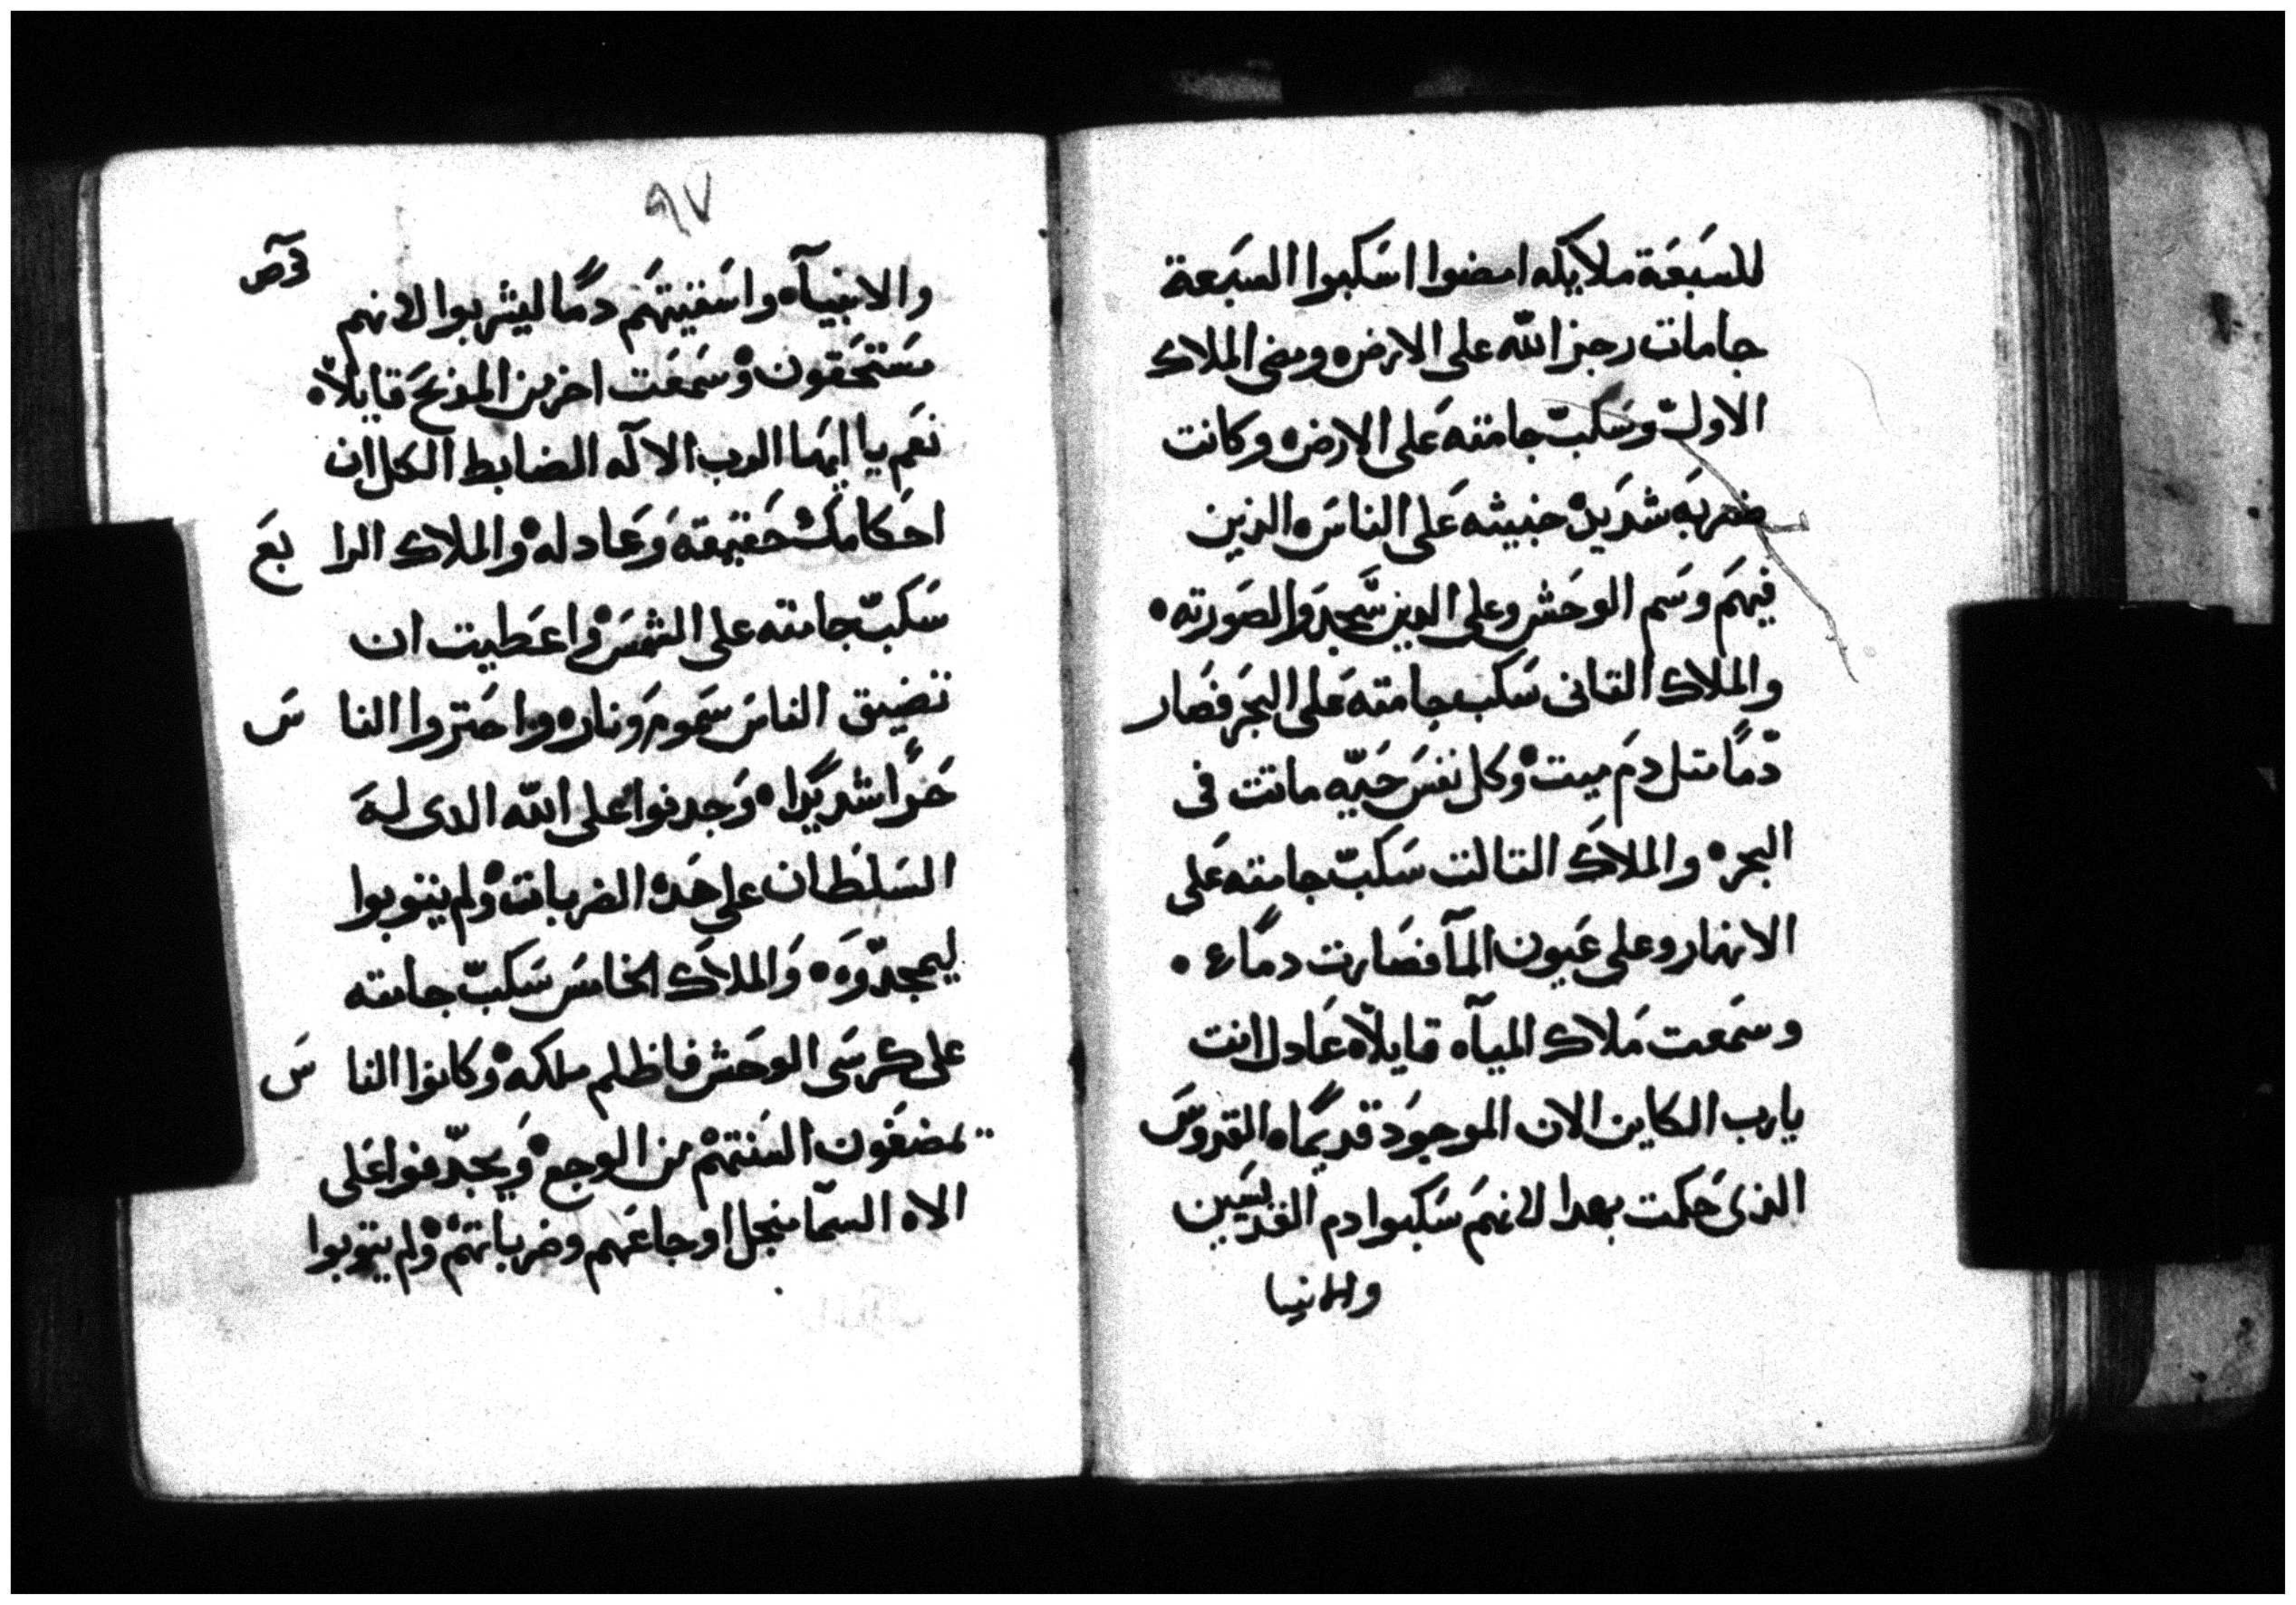 للسَبعَة ملايكه امضوا اسَكبوا السَبعة
جامات رجز الله على الارض ه ومضى الملاك
الاولّ وسَكبّ جامته عَلى الارض ه وكانت
ضربَه شدَيده خبيثه عَلى الناسَ ه الذين
فيهَم وسَم الوحَش وعلى الدين سَّجدَوا لصَورته ه
والملاك التانى سَكب جامته عَلى البحَر فصَار
دّمًا متل دمَ ميت ه وكل نفسَ حَيّه ماتت فى
البحر ه والملاكَ التالت سَكبّ جامته عَلى
الانهار وعلى عَيون المآ فصَارت دمًا ه
وسَمعت مَلاك الميآه قايلًا ه عَادل انت
يارب الكاين الان الموجوَد قديمًا ه القدوسَ
الذىَ حَكمت بهدا لانهمَ سَكبوا دم القديسَين
والانبيا
٩٧
والانبيآ ه واسَقيتهَم دمًا ليشربوا لانهم
مسَتحَقون ه وسَمعَت اخر من المذبحَ قايلًا ه
نعَم يا ايهَا الرب الالَه الضابط الكل ان
احَكامكَ حَقيقه وَعَادله ه والملاك الرا بعَ
سَكبّ جامته على الشمسَ ه واعَطيت ان
تضيق الناسَ سَموم وَنار ه واحَتروا النا سَ
حَرًا شديَدًا ه وَجدفوا عَلى الله الدى له
السَلطَان على هَده الضربات ه ولم يتوبوا
ليمجدّوَه ه وَالملاكَ الخامسَ سَكبّ جامته
على كرسَى الوحَش فاظلم ملكه ه وكانوا النا سَ
يمضغَون السَنتهَم من الوجع ه وَيجدّفوا عَلى
الاه السَمآ من اجل اوجاعَهم وضرباتهَم ه ولم يتوبوا